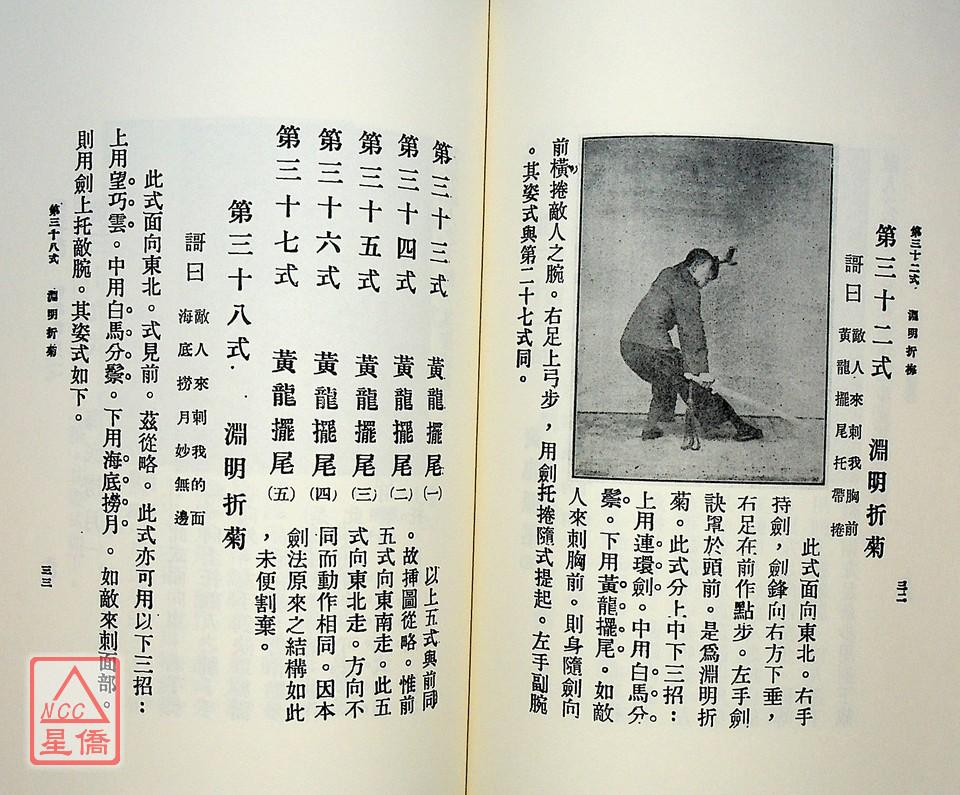 第三十二式 淵明折梅
三二
第三十二式 淵明折菊
謌曰
敵人來刺我胸前
黃龍擺尾托帶捲
此式面向東北。右手
持劍，劍鋒向右方下垂，
右足在前作點步。左手劍
訣罩於頭前。是爲淵明折
菊。此式分上中下三招：
上用連環劍。中用白馬分
鬃。下用黃龍擺尾。如敵
人來刺胸前。則身隨劍向
前橫捲敵人之腕。右足上弓步，用劍托捲隨式提起。左手副腕
。其姿式與第二十七式同。
第三十三式 黃龍擺尾(一)
第三十四式 黃龍擺尾(二)
第三十五式 黃龍擺尾(三)
第三十六式 黃龍擺尾(四)
第三十七式 黃龍擺尾(五)
以上五式與前同
。故挿圖從略。惟前
五式向東南走。此五
式向東北走。方向不
同而動作相同。因本
劍法原來之結構如此
，未便割棄。
第三十八式 淵明折菊
謌曰
敵人來刺我的面
海底撈月妙無邊
此式面向東北。式見前。茲從略。此式亦可用以下三招：
上用望巧雲。中用白馬分鬃。下用海底撈月。如敵來刺面部。
則用劍上托敵腕。其姿式如下。
第三十八式 淵明折菊
三三
NCC
星僑